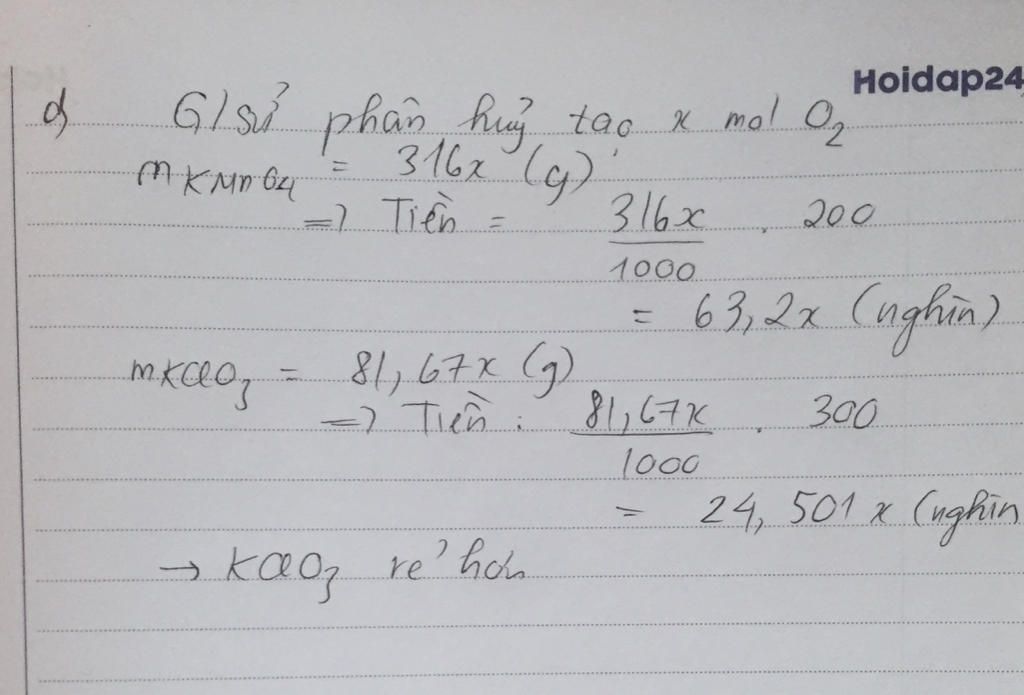 Hoidap24
d, G/sử phân huỷ tạo x mol O2
mKMnO4 = 316x (g)
=> Tiền = 316x/1000 . 200
= 63,2x (nghìn)
mKClO3 = 81,67x (g)
=> Tiền : 81,67x/1000 . 300
= 24,501x (nghìn
→ KClO3 rẻ hơn